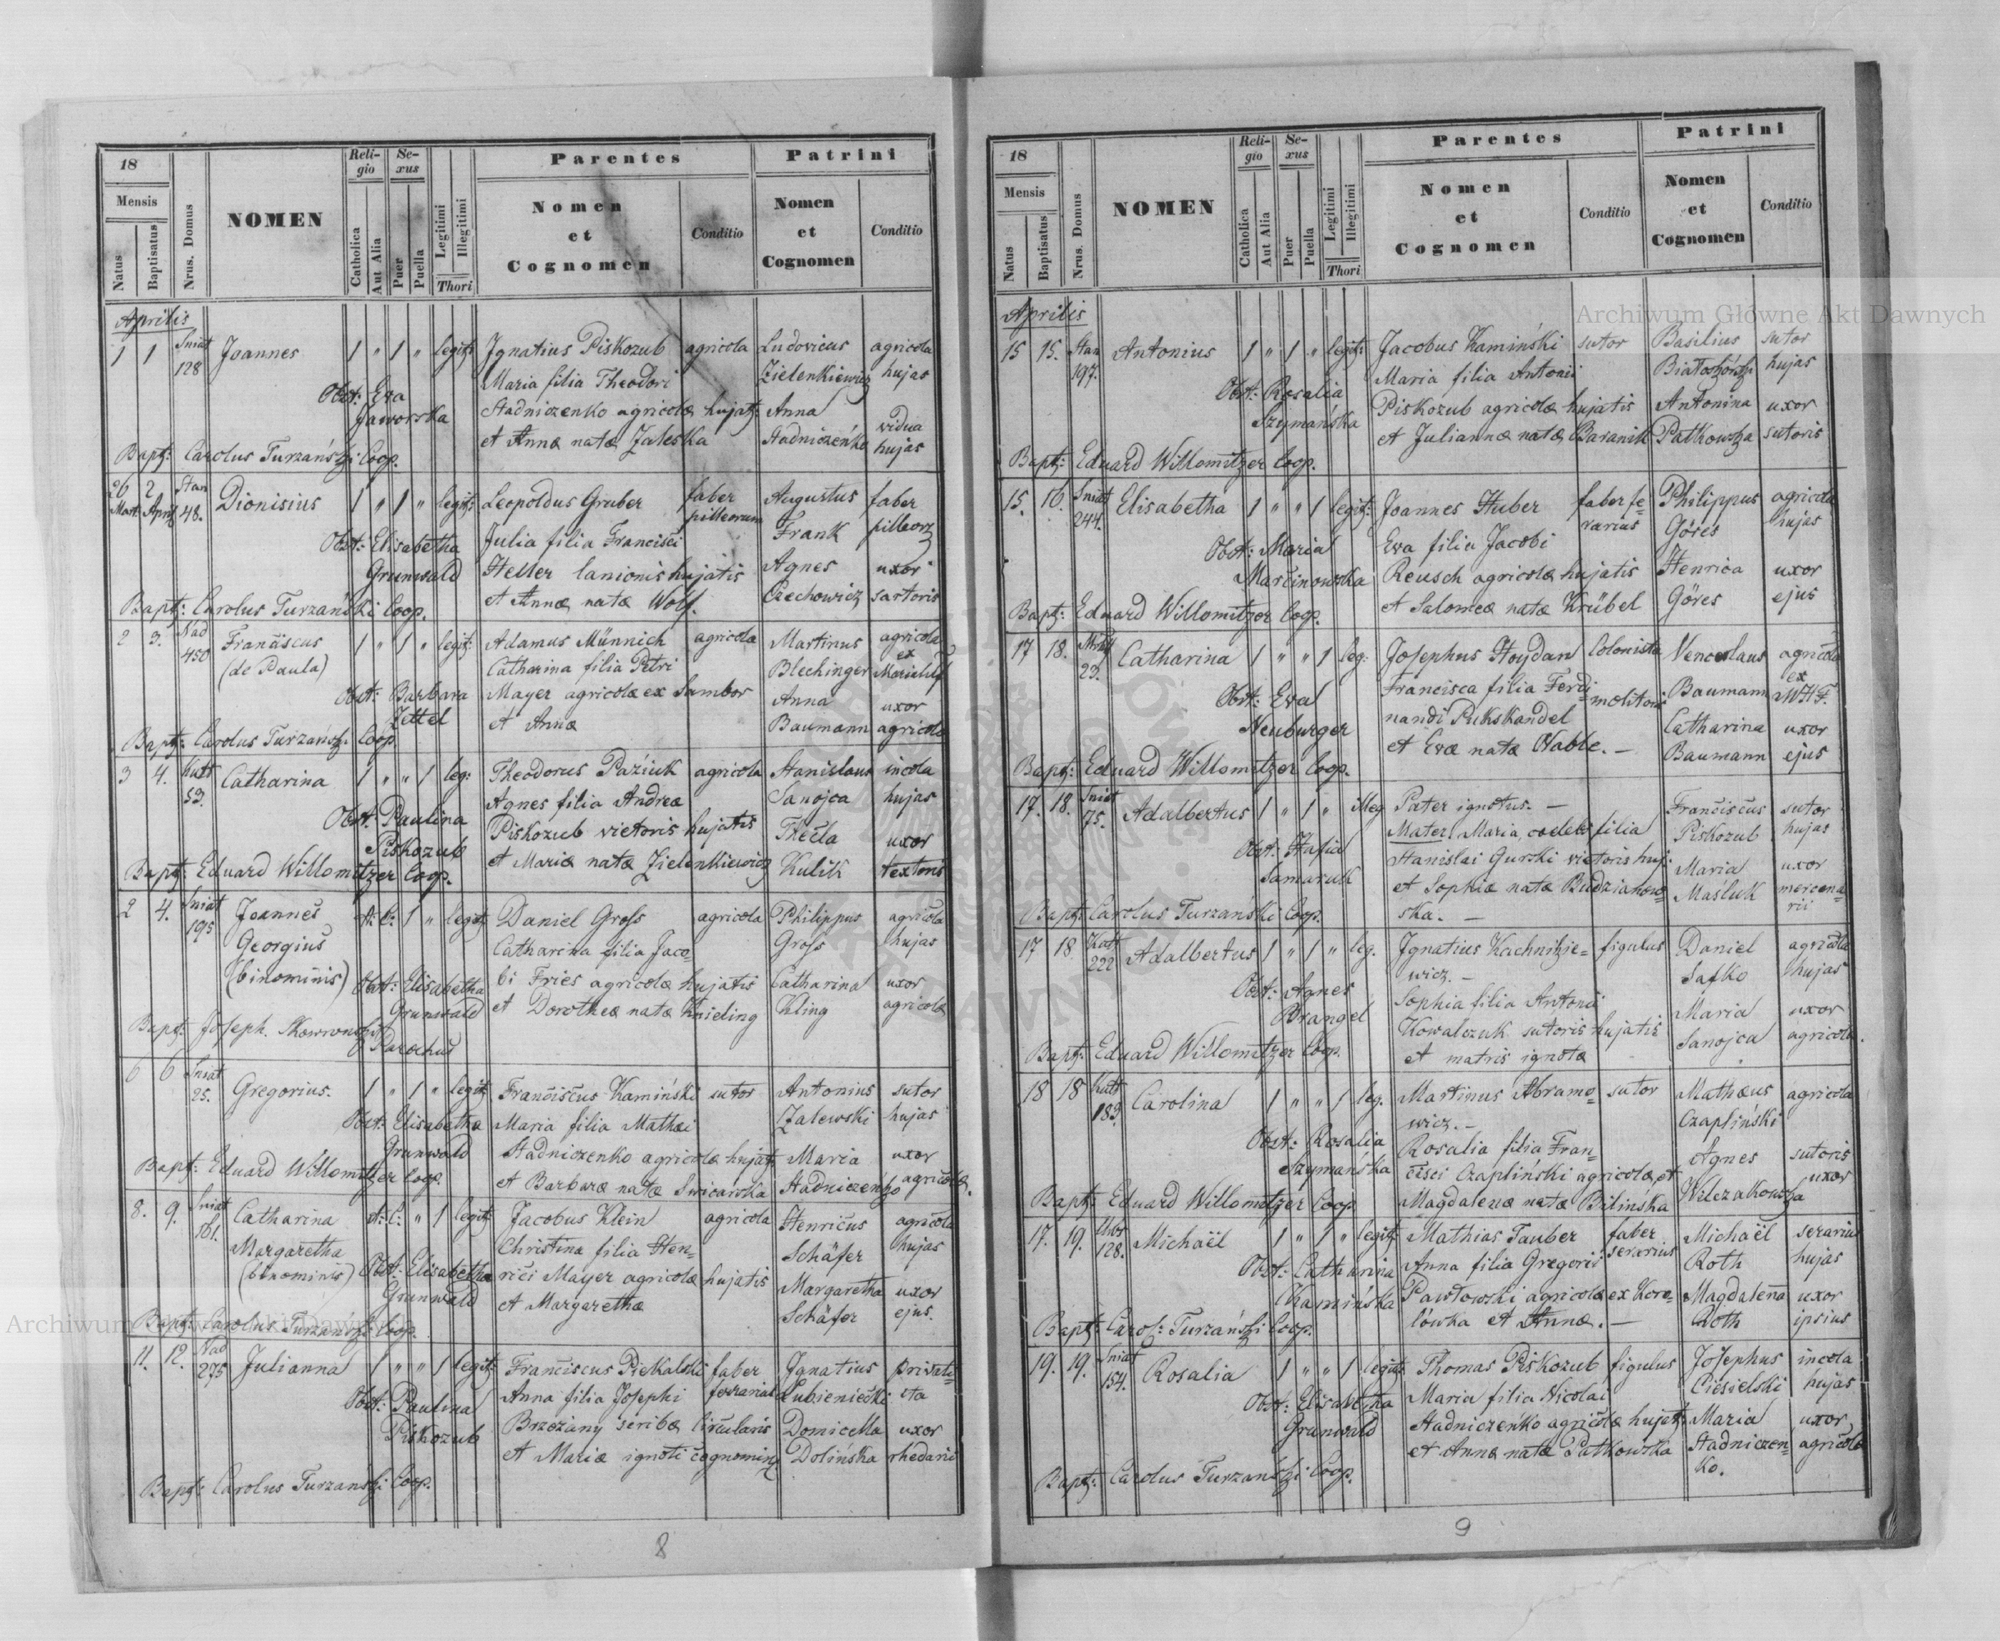 18
Mensis
Natus
Baptisatus
Nrus. Domus
NOMEN
Reli-
gio
Catholica
Aut Alia
Se-
xus
Puer
Puella
Legitimi
Illegitimi
Thori
Parentes
Nomen
et
Cognomen
Conditio
Patrini
Nomen
et
Cognomen
Conditio
Aprilis
1 1 Sniat 128 Joannes 1 " 1 " legit: Ignatius Piskozub agricola Ludovicus agricola
Maria filia Theodori Zielenkiewicz hujas
Obst: Eva
Jaworska Stadniczenko agricolæ hujat: Anna vidua
et Annæ natæ Zaleska Stadniczeńko hujas
Bapt: Carolus Turzański Coop.
26 Mart. 2 April Stan 48. Dionisius 1 " 1 " legit: Leopoldus Gruber faber pilleorum Augustus Frank faber pilleor:
Obst: Elisabetha Julia filia Francisci
Grunwald Heller lanionis hujatis Agnes uxor
et Annæ natæ Wolf. Czechowicz sartoris
Bapt: Carolus Turzański Coop.
2 3. Nad 450 Franciscus 1 " 1 " legit: Adamus Münnich agricola Martinus agricola
(de Paula) Catharina filia Petri Blechinger ex Mariahilf
Obst: Barbara Mayer agricolæ ex Sambor Anna uxor
Zettel et Annæ Baumann agricolæ
Bapt: Carolus Turzański Coop.
3 4. Kutt 53. Catharina 1 " " 1 leg: Theodorus Paziuk agricola Stanislaus incola
Agnes filia Andreæ Sanojca hujas
Obst: Paulina Piskozub victoris hujatis Thecla uxor
Piskozub et Mariæ natæ Zielenkiewicz Kulik textoris
Bapt: Eduard Willomitzer Coop.
2 4. Sniat 195 Joannes A: C: 1 " legit: Daniel Gross agricola Philippus agricola
Georgius Catharina filia Jaco- Gross hujas
(binominis) Obst: Elisabetha bi Fries agricolæ hujatis Catharina uxor
Grunwald et Dorotheæ natæ Knieling Kling agricolæ
Bapt: Joseph. Skowroński Parochus
6 6 Sniat 25. Gregorius. 1 " 1 " legit: Franciscus Kamiński sutor Antonius sutor
Obst: Elisabetha Maria filia Mathæi Zalewski hujas
Grunwald Stadniczenko agricolæ hujat: Maria uxor
et Barbaræ natæ Stadniczeńko agricolæ.
Bapt: Eduard Willomitzer Coop.
8. 9. Sniat 161. Catharina A: C: " 1 legit: Jacobus Klein agricola Henricus agricola
Margaretha Christina filia Hen- Schäfer hujas
(binominis) Obst: Elisabetha rici Mayer agricolæ hujatis Margaretha uxor
Grunwald et Margarethæ Schäfer ejus.
Bapt: Carolus Turzański Coop.
11. 12. Nad 275 Julianna 1 " " 1 legit: Franciscus Piekalski faber Ignatius privati-
Obst: Paulina Anna filia Josephi ferrarius Lubieniecki sta
Piskozub Brzeżany scribæ circularis Domicella uxor
et Mariæ ignoti cognominis Dolińska rhedarii
Bapt: Carolus Turzański Coop.
8
18
Mensis
Natus
Baptisatus
Nrus. Domus
NOMEN
Reli-
gio
Catholica
Aut Alia
Se-
xus
Puer
Puella
Legitimi
Illegitimi
Thori
Parentes
Nomen
et
Cognomen
Conditio
Patrini
Nomen
et
Cognomen
Conditio
Aprilis
15 15. Stan 197. Antonius 1 " 1 " legit: Jacobus Kamiński sutor Basilius sutor
Maria filia Antonii Białoskórski hujas
Obst: Rosalia Piskozub agricolæ hujatis Antonina uxor
Szymańska et Juliannæ natæ Baranik Patkowska sutoris
Bapt: Eduard Willomitzer Coop.
15. 16. Sniat 244. Elisabetha 1 " " 1 legit: Joannes Huber faber fe- Philippus agricola
rarius Göres hujas
Obst: Maria Eva filia Jacobi Henrica uxor
Marcinowska Reusch agricolæ hujatis Göres ejus
et Salomeæ natæ Krübel
Bapt: Eduard Willomitzer Coop.
17 18. 23. Catharina 1 " " 1 leg: Josephus Hoydan Colonista Venceslaus agricola
Francisca filia Ferdi- Baumann ex MHF.
Obst: Eva nandi Pukskandel molitoris Catharina uxor
Neuburger et Evæ natæ Nable. — Baumann ejus
Bapt: Eduard Willomitzer Coop.
17. 18. Sniat 75. Adalbertus 1 " 1 " illeg Pater ignotus. — Franciscus sutor
Mater, Maria, coelebs filia Piskozub hujas
Obst: Hafia Stanislai Gurski victoris huj: Maria uxor
Samaruk et Sophiæ natæ Budziakow- Masluk mercena-
ska. — rii
Bapt: Carolus Turzański Coop.
17 18 Kutt 222 Adalbertus 1 " 1 " leg. Ignatius Kachnikie- figulus Daniel agricola
wicz. — Safko hujas
Obst: Agnes Sophia filia Antonii Maria uxor
Brangel Kowalczuk sutoris hujatis Sanojca agricolæ.
et matris ignotæ
Bapt: Eduard Willomitzer Coop.
18 18 Kutt 183. Carolina 1 " " 1 leg. Martinus Abramo- sutor Mathæus agricola
wicz. — Czapliński
Obst: Rosalia Rosalia filia Fran- Agnes sutoris
Szymańska cisci Czapliński agricolæ, et Wilczakowska uxor
Magdalenæ natæ Bilińska
Bapt: Eduard Willomitzer Coop.
17. 19. 128. Michaël 1 " 1 " legit: Mathias Tauber faber Michaël serarius
Anna filia Gregorii serarius Roth hujas
Obst: Catharina Pawłowski agricolæ ex Koro- Magdalena uxor
Kamińska lówka et Annæ. — Roth ipsius
Bapt: Carol: Turzański Coop.
19. 19. Sniat 154. Rosalia 1 " " 1 legit: Thomas Piskozub figulus Josephus incola
Obst: Elisabetha Maria filia Nicolai Ciesielski hujas
Grunwald Stadniczeńko agricolæ hujat: Maria uxor
et Annæ natæ Patkowska Stadniczen- agricolæ
ko.
Bapt: Carolus Turzański Coop.
9
Archiwum Główne Akt Dawnych
Archiwum Główne Akt Dawnych